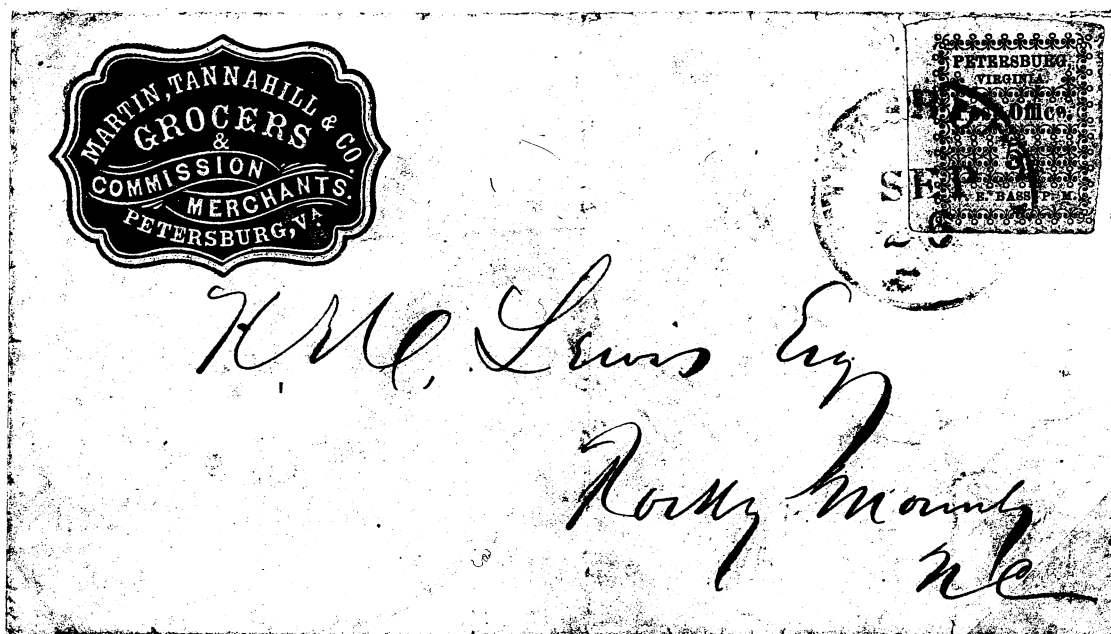 MARTIN, TANNAHILL & CO.
GROCERS
&
COMMISSION
MERCHANTS.
PETERSBURG, VA
PETERSBURG
VIRGINIA.
Post Office.
5
E. BASS, P. M.
SEP
Lewis Esq
Rocky Mount
N C